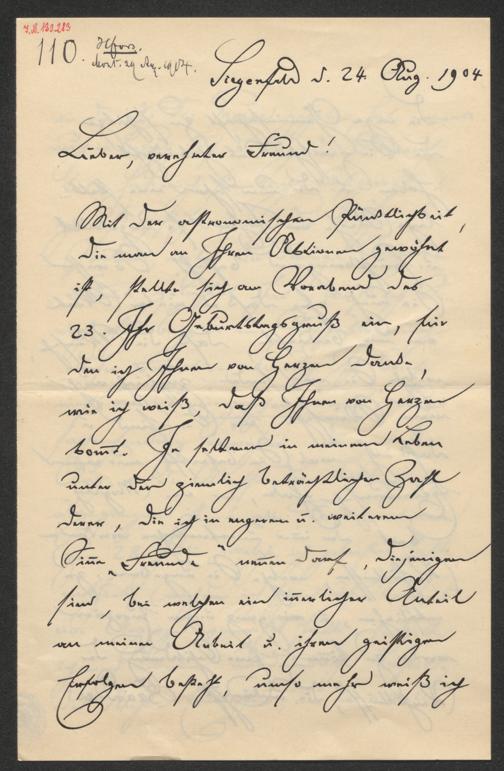 I.N. 139.283
110.
Siegenfeld d. 24. Aug. 1904
Lieber, verehrter Freund!
Mit der astronomischen Pünktlichkeit,
die man an Ihren Aktionen gewöhnt
ist, stellte sich am Vorabend des
23. Ihr Geburtstagsgruß ein, für
den ich Ihnen von Herzen danke,
wie ich weiß, daß Ihnen von Herzen
kom̄t. Je seltener in meinem Leben
unter der ziemlich beträchtlichen Zahl
derer, die ich in engerem u. weiterem
Sin̄e „Freunde" nennen darf, diejenigen
sind, bei welchen ein in̄erlicher Anteil
an meiner Arbeit u. ihren geistigen
Erfolgen besteht, umso mehr weiß ich